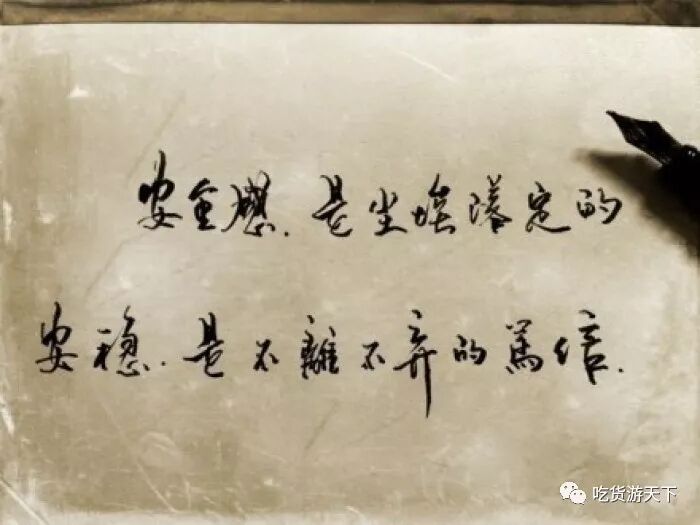 安全感.是尘埃落定的
安穏.是不離不弃的篤信.
吃货游天下